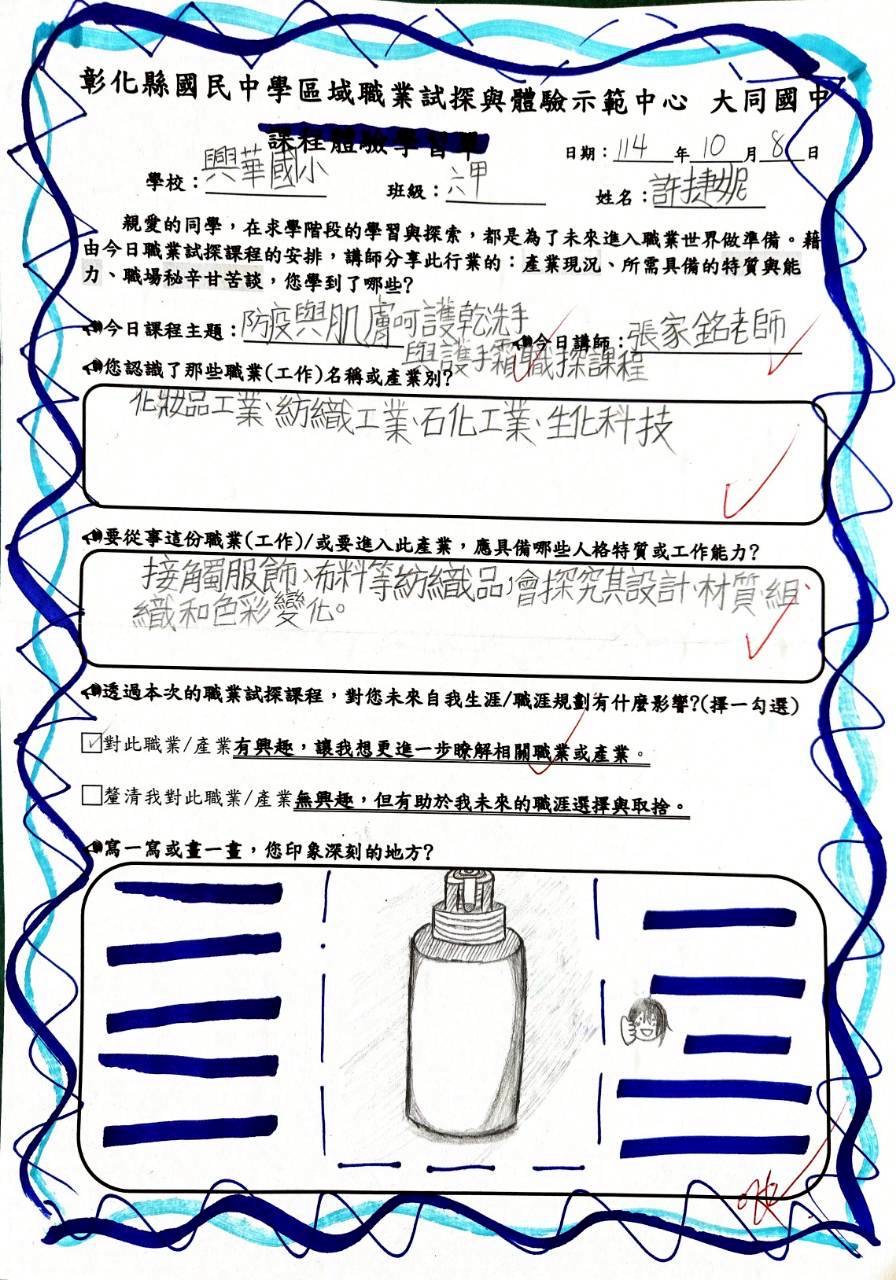 彰化縣國民中學區域職業試探與體驗示範中心 大同國中
課程體驗學習單
日期：114年10月8日
學校：興華國小 班級：六甲 姓名：許捷妮
親愛的同學，在求學階段的學習與探索，都是為了未來進入職業世界做準備。藉
由今日職業試探課程的安排，講師分享此行業的：產業現況、所需具備的特質與能
力、職場秘辛甘苦談，您學到了哪些？
今日課程主題：防疫與肌膚呵護乾洗手
與護手霜職探課程
今日講師：張家銘老師
您認識了那些職業(工作)名稱或產業別？
化妝品工業、紡織工業、石化工業、生化科技
要從事這份職業(工作)/或要進入此產業，應具備哪些人格特質或工作能力？
接觸服飾、布料等紡織品，會探究其設計、材質、組
織和色彩變化。
透過本次的職業試探課程，對您未來自我生涯/職涯規劃有什麼影響？(擇一勾選)
☑對此職業/產業有興趣，讓我想更進一步瞭解相關職業或產業。
□釐清我對此職業/產業無興趣，但有助於我未來的職涯選擇與取捨。
寫一寫或畫一畫，您印象深刻的地方？